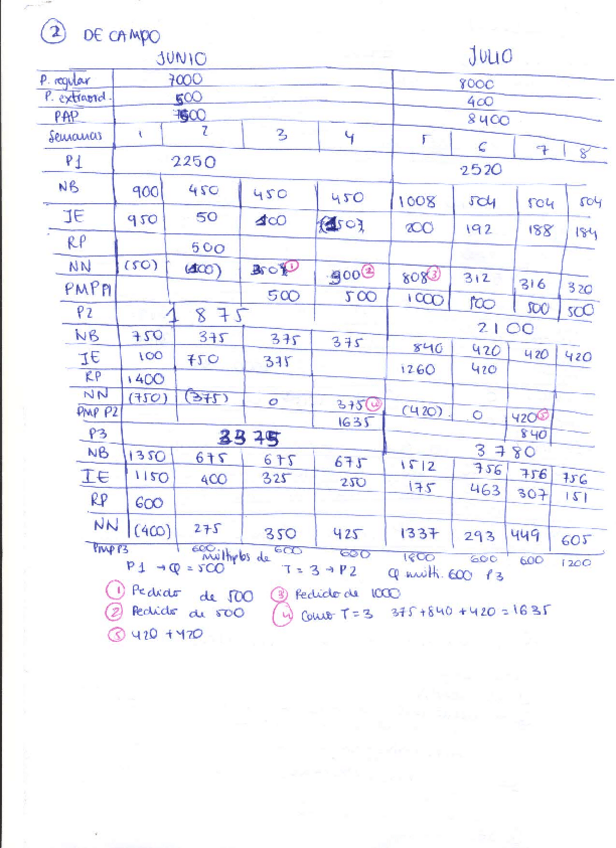 2 DE CAMPO
JUNIO JULIO
P. regular 7000 8000
P. extraord. 500 400
PAP 7500 8400
Semanas 1 2 3 4 5 6 7 8
P1 2250 2520
NB 900 450 450 450 1008 504 504 504
IE 950 50 100 200 192 188 184
RP 500
NN (50) (400) 1 900 2 808 3 312 316 320
PMP P1 500 500 1000 500 500 500
P2 1875 2100
NB 750 375 375 375 840 420 420 420
IE 100 750 375 1260 420
RP 1400
NN (750) (375) 0 375 4 (420) 0 420 5
PMP P2 1635 840
P3 3375 3780
NB 1350 675 675 675 1512 756 756 756
IE 1150 400 325 250 175 463 307 151
RP 600
NN (400) 275 350 425 1337 293 449 605
PMP P3 600 600 600 1800 600 600 1200
P1 → Q = 500 múltiplos de T = 3 → P2 Q múlti. 600 P3
1 Pedido de 500 3 Pedido de 1000
2 Pedido de 500 4 Como T=3 375+840+420=1635
5 420+420